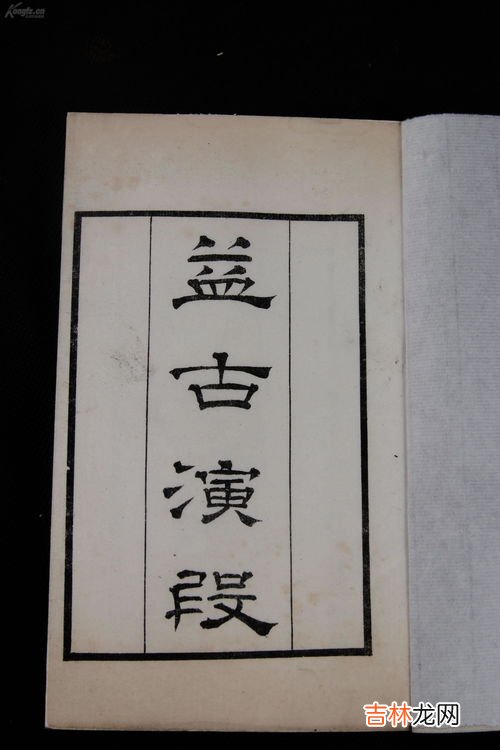 Kongfz.cn
益古演段
吉林龙网